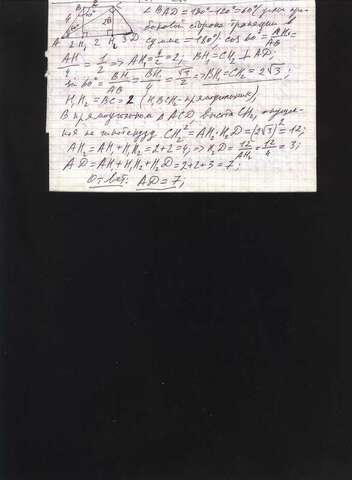 ∠BAD = 180° - 120° = 60° (углы при
боковой стороне трапеции в
сумме = 180°). cos 60° = AH₁/AB
AH₁/4 = 1/2 => AH₁ = 4/2 = 2; BH₁ = CH₂ ⊥ AD;
sin 60° = BH₁/AB = BH₁/4 = √3/2 => BH₁ = CH₂ = 2√3;
H₁H₂ = BC = 2 (H₁BCH₂ - прямоугольник)
В прямоугольном Δ ACD высота CH₂, опущен-
ная на гипотенузу CH₂² = AH₂·H₂D = (2√3)² = 12;
AH₂ = AH₁ + H₁H₂ = 2+2 = 4; => H₂D = 12/AH₂ = 12/4 = 3;
AD = AH₁ + H₁H₂ + H₂D = 2+2+3 = 7;
Ответ: AD = 7;
A 2 H₁ 2 H₂ 3 D